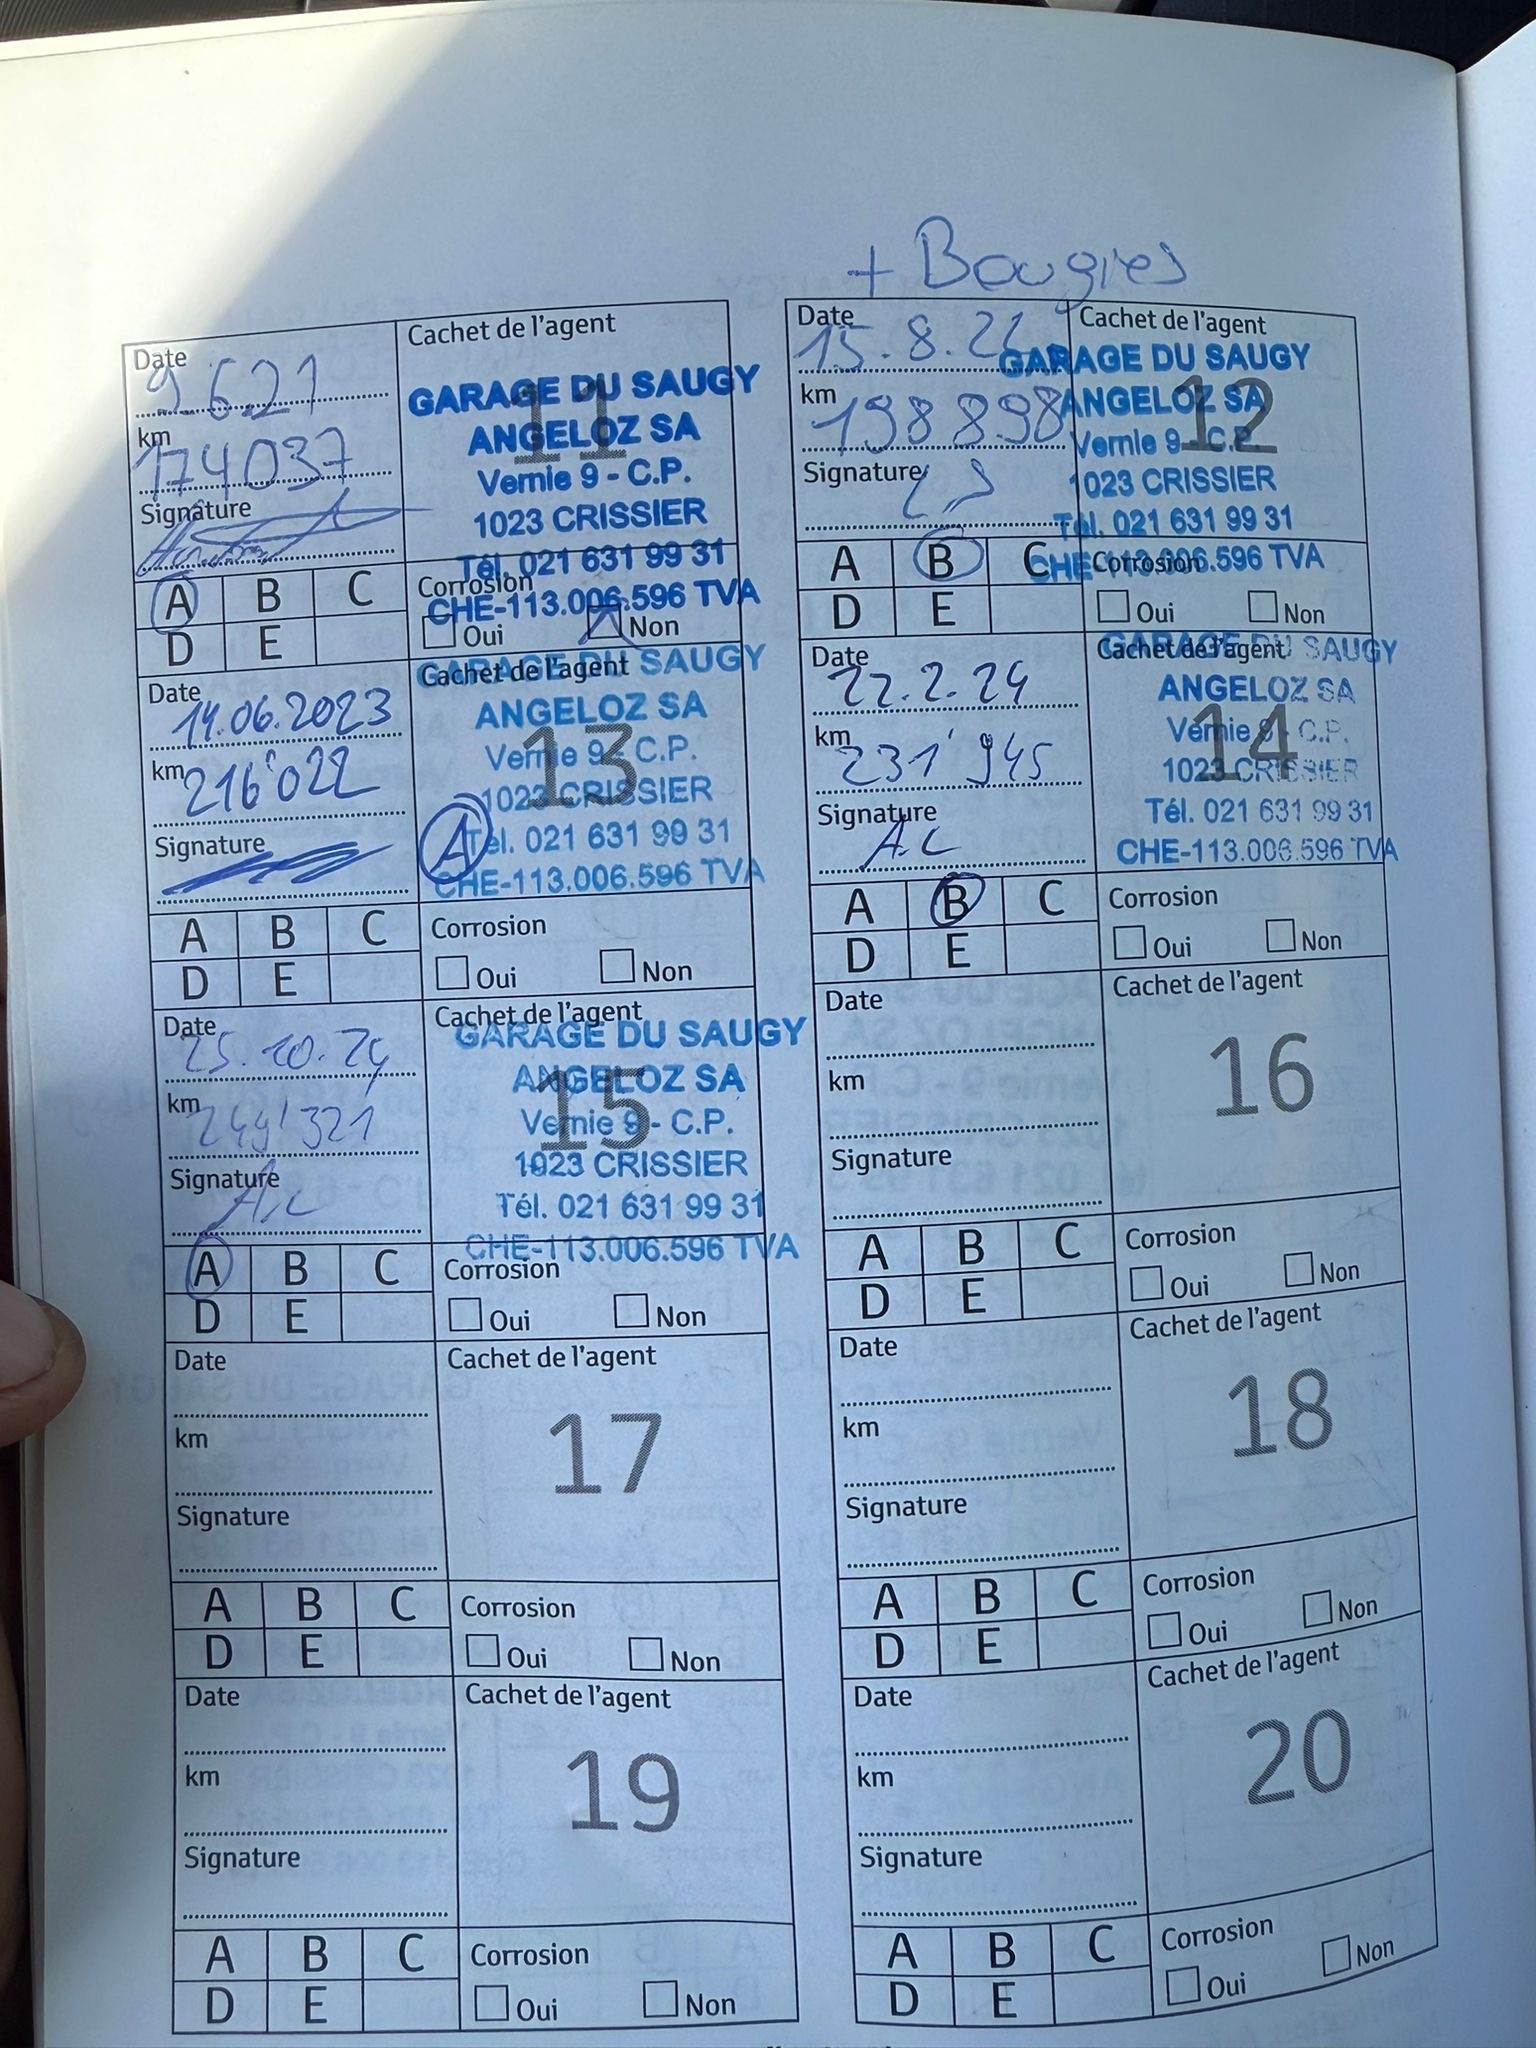 + Bougies
Date 9.6.21
km 174037
Signature
Cachet de l'agent
11
GARAGE DU SAUGY
ANGELOZ SA
Vernie 9 - C.P.
1023 CRISSIER
Tél. 021 631 99 31
CHE-113.006.596 TVA
A B C
D E
Corrosion
Oui Non
Date 15.8.22
km 198898
Signature
Cachet de l'agent
12
GARAGE DU SAUGY
ANGELOZ SA
Vernie 9 - C.P.
1023 CRISSIER
Tél. 021 631 99 31
CHE-113.006.596 TVA
A B C
D E
Corrosion
Oui Non
Date 14.06.2023
km 216'022
Signature
Cachet de l'agent
13
GARAGE DU SAUGY
ANGELOZ SA
Vernie 9 - C.P.
1023 CRISSIER
A
Tél. 021 631 99 31
CHE-113.006.596 TVA
A B C
D E
Corrosion
Oui Non
Date 22.2.24
km 231'945
Signature A.C
Cachet de l'agent
14
GARAGE DU SAUGY
ANGELOZ SA
Vernie 9 - C.P.
1023 CRISSIER
Tél. 021 631 99 31
CHE-113.006.596 TVA
A B C
D E
Corrosion
Oui Non
Date 25.10.24
km 249'321
Signature A.C
Cachet de l'agent
15
GARAGE DU SAUGY
ANGELOZ SA
Vernie 9 - C.P.
1023 CRISSIER
Tél. 021 631 99 31
CHE-113.006.596 TVA
A B C
D E
Corrosion
Oui Non
Date
km
Signature
Cachet de l'agent
16
A B C
D E
Corrosion
Oui Non
Date
km
Signature
Cachet de l'agent
17
A B C
D E
Corrosion
Oui Non
Date
km
Signature
Cachet de l'agent
18
A B C
D E
Corrosion
Oui Non
Date
km
Signature
Cachet de l'agent
19
A B C
D E
Corrosion
Oui Non
Date
km
Signature
Cachet de l'agent
20
A B C
D E
Corrosion
Oui Non